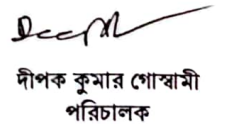 দীপক কুমার গোস্বামী
পরিচালক